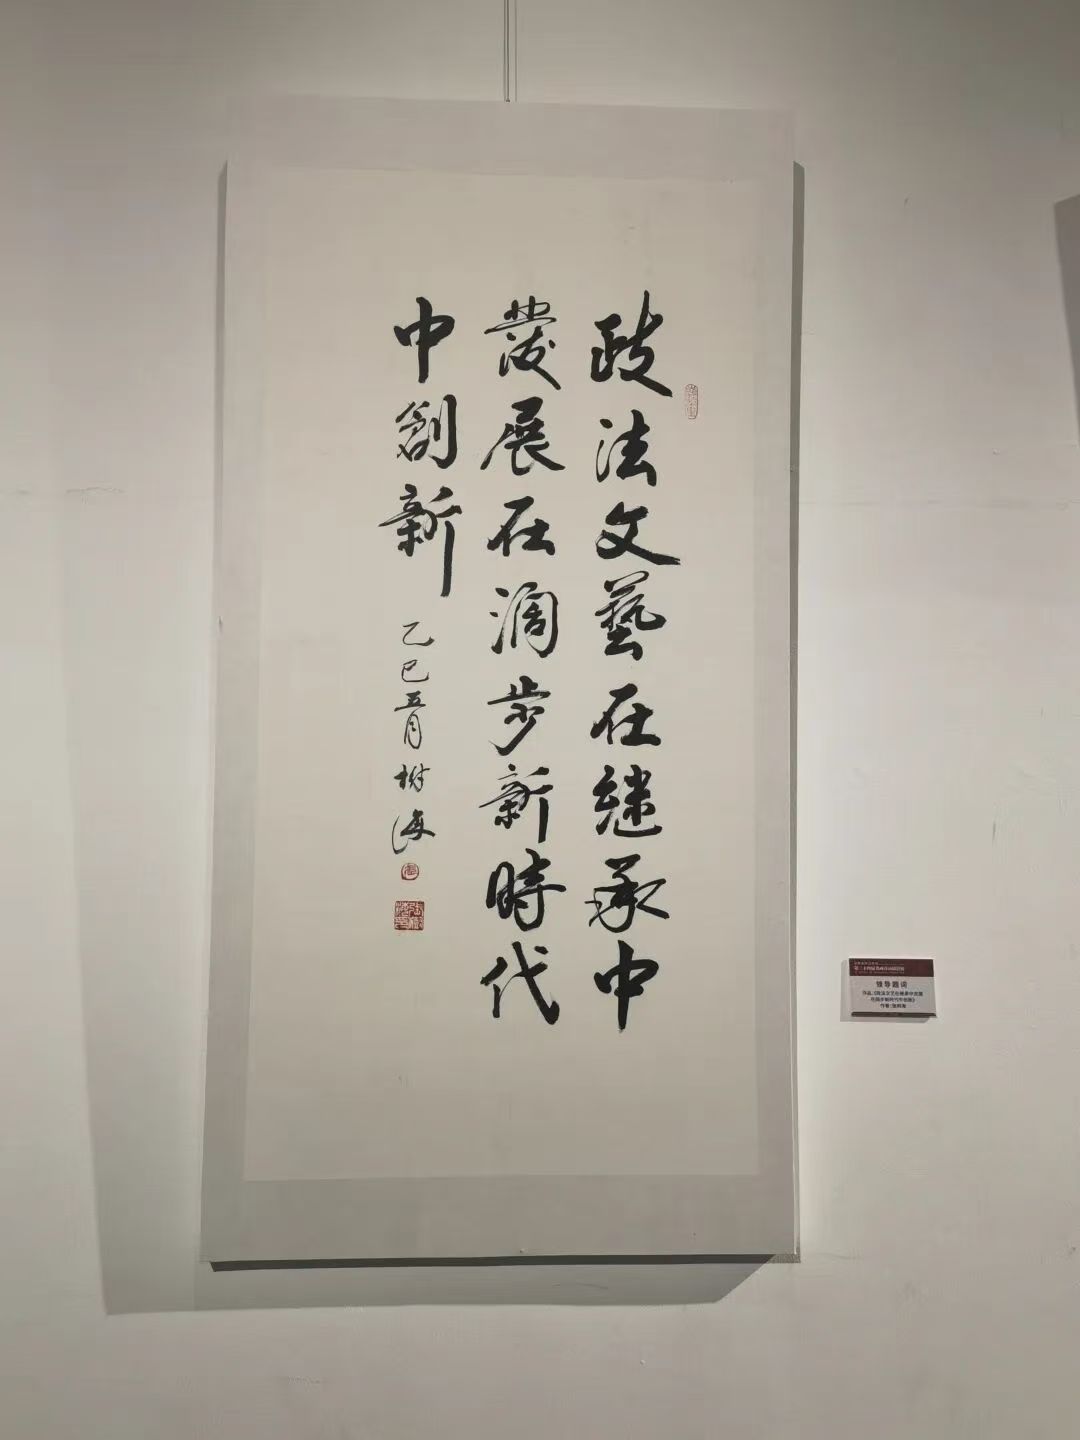 政法文藝在继承中
發展在阔步新時代
中創新
乙巳五月 树海
第二十四届
领导题词
作品:《政法文艺在继承中发展
在阔步新时代中创新》
作者:张树海